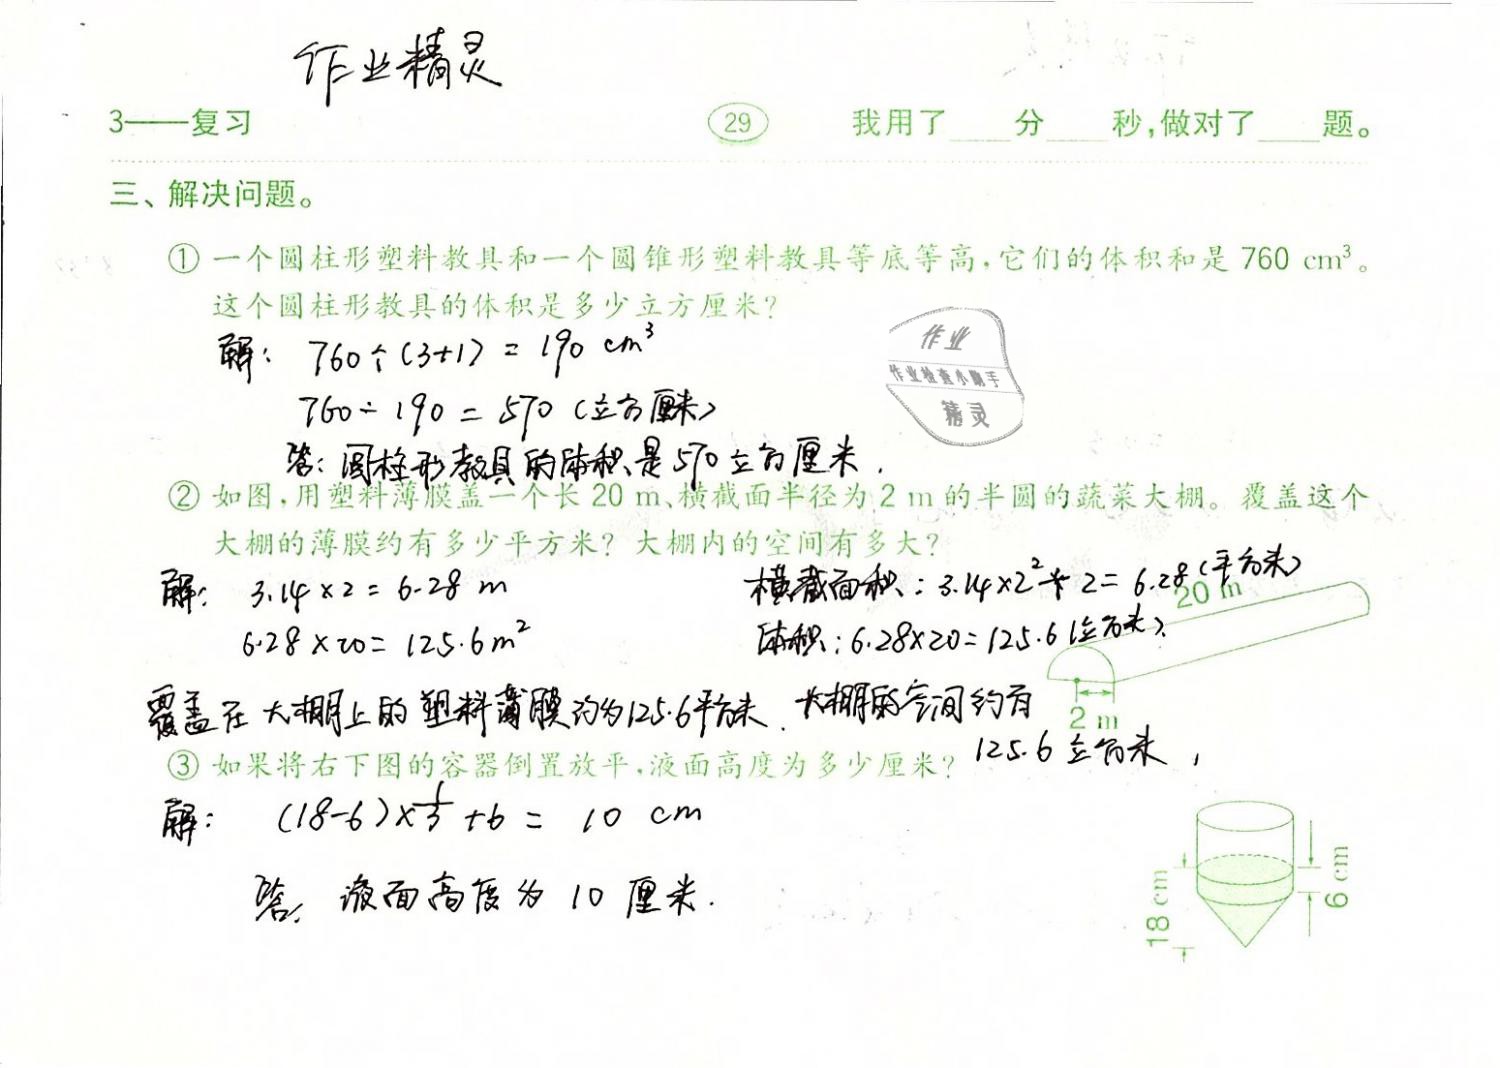 作业精灵
3——复习 29 我用了___分___秒,做对了___题。
三、解决问题。
① 一个圆柱形塑料教具和一个圆锥形塑料教具等底等高,它们的体积和是 760 cm³。
这个圆柱形教具的体积是多少立方厘米?
解: 760÷(3+1) = 190 cm³
760 - 190 = 570 (立方厘米)
答: 圆柱形教具的体积是570立方厘米.
作业
作业检查小助手
精灵
② 如图,用塑料薄膜盖一个长 20 m、横截面半径为 2 m 的半圆的蔬菜大棚。覆盖这个
大棚的薄膜约有多少平方米? 大棚内的空间有多大?
解: 3.14×2 = 6.28 m 横截面积: 3.14×2²÷2 = 6.28 (平方米)
6.28×20 = 125.6 m² 体积: 6.28×20=125.6 (立方米).
20 m
覆盖在大棚上的塑料薄膜约为125.6平方米. 大棚的空间约有
125.6 立方米,
2 m
③ 如果将右下图的容器倒置放平,液面高度为多少厘米?
解: (18-6)×1/3 +6 = 10 cm
答, 液面高度为 10 厘米.
18 cm
6 cm